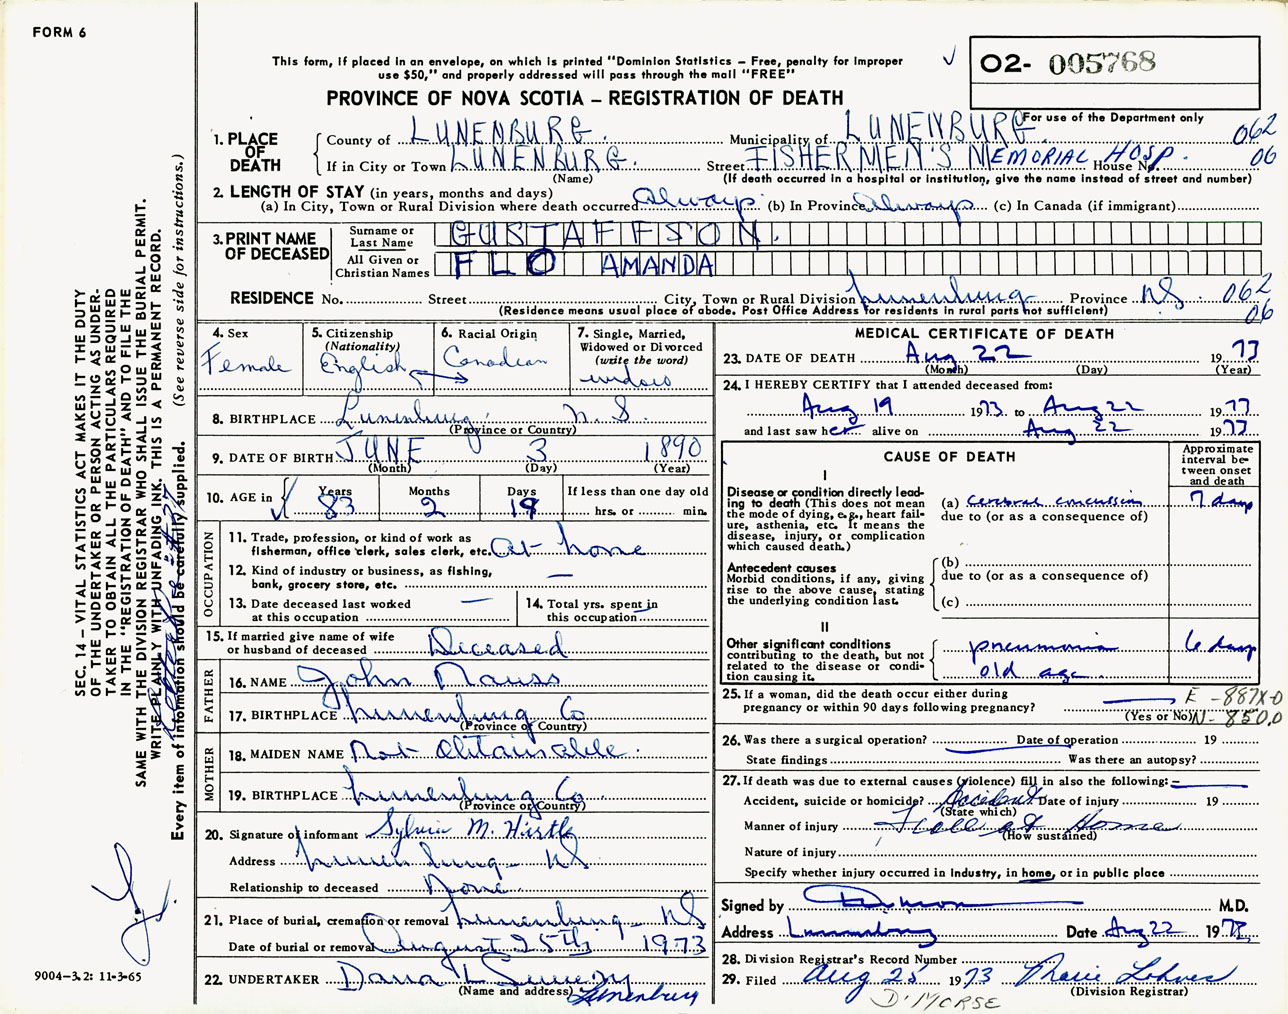 FORM 6
This form, if placed in an envelope, on which is printed "Dominion Statistics – Free, penalty for improper
use $50," and properly addressed will pass through the mail "FREE"
✓
O2- 005768
PROVINCE OF NOVA SCOTIA – REGISTRATION OF DEATH
For use of the Department only
1. PLACE OF DEATH
County of LUNENBURG. Municipality of LUNENBURG 062
If in City or Town LUNENBURG. Street FISHERMEN'S MEMORIAL HOSP. House No. 06
(Name) (If death occurred in a hospital or institution, give the name instead of street and number)
2. LENGTH OF STAY (in years, months and days)
(a) In City, Town or Rural Division where death occurred Always (b) In Province Always (c) In Canada (if immigrant)
3. PRINT NAME OF DECEASED
Surname or Last Name GUSTAFFSON.
All Given or Christian Names FLO AMANDA
RESIDENCE No. Street City, Town or Rural Division Lunenburg Province NS. 062
(Residence means usual place of abode. Post Office Address for residents in rural parts not sufficient) 06
4. Sex
Female
5. Citizenship
(Nationality)
English
6. Racial Origin
Canadian
7. Single, Married,
Widowed or Divorced
(write the word)
widow
8. BIRTHPLACE Lunenburg N.S.
(Province or Country)
9. DATE OF BIRTH JUNE 3 1890
(Month) (Day) (Year)
10. AGE in ✓ Years Months Days If less than one day old
83 2 19 hrs. or min.
OCCUPATION
11. Trade, profession, or kind of work as
fisherman, office clerk, sales clerk, etc. At home
12. Kind of industry or business, as fishing,
bank, grocery store, etc. —
13. Date deceased last worked
at this occupation —
14. Total yrs. spent in
this occupation —
15. If married give name of wife
or husband of deceased Deceased
FATHER
16. NAME John Nauss
17. BIRTHPLACE Lunenburg Co
(Province or Country)
MOTHER
18. MAIDEN NAME Not Obtainable.
19. BIRTHPLACE Lunenburg Co.
(Province or Country)
20. Signature of informant Sylvia M. Hirtle
Address Lunenburg NS
Relationship to deceased None
21. Place of burial, cremation or removal Lunenburg NS
Date of burial or removal August 25th 1973
22. UNDERTAKER Dana L Sweeny
(Name and address) Lunenburg
MEDICAL CERTIFICATE OF DEATH
23. DATE OF DEATH Aug 22 19 73
(Month) (Day) (Year)
24. I HEREBY CERTIFY that I attended deceased from:
Aug 19 1973 to Aug 22 1973
and last saw her alive on Aug 22 1973
CAUSE OF DEATH
Approximate
interval be-
tween onset
and death
I
Disease or condition directly lead-
ing to death (This does not mean
the mode of dying, e.g., heart fail-
ure, asthenia, etc. It means the
disease, injury, or complication
which caused death.)
(a) cerebral concussion 7 days
due to (or as a consequence of)
Antecedent causes
Morbid conditions, if any, giving
rise to the above cause, stating
the underlying condition last.
(b)
due to (or as a consequence of)
(c)
II
Other significant conditions
contributing to the death, but not
related to the disease or condi-
tion causing it.
pneumonia 6 days
old age
25. If a woman, did the death occur either during
pregnancy or within 90 days following pregnancy? —
(Yes or No)
E -887X-0
N- 850.0
26. Was there a surgical operation? Date of operation 19
State findings Was there an autopsy?
27. If death was due to external causes (violence) fill in also the following: –
Accident, suicide or homicide? Accident Date of injury 19
(State which)
Manner of injury Fall at Home
(How sustained)
Nature of injury
Specify whether injury occurred in industry, in home, or in public place
Signed by M.D.
Address Lunenburg Date Aug 22 1973
28. Division Registrar's Record Number
29. Filed Aug 25 1973
(Division Registrar)
D' MORSE
SEC. 14 – VITAL STATISTICS ACT MAKES IT THE DUTY
OF THE UNDERTAKER OR PERSON ACTING AS UNDER-
TAKER TO OBTAIN ALL THE PARTICULARS REQUIRED
IN THE "REGISTRATION OF DEATH" AND TO FILE THE
SAME WITH THE DIVISION REGISTRAR WHO SHALL ISSUE THE BURIAL PERMIT.
WRITE PLAINLY WITH UNFADING INK. THIS IS A PERMANENT RECORD.
Every item of information should be carefully supplied. (See reverse side for instructions.)
9004-3.2: 11-3-65